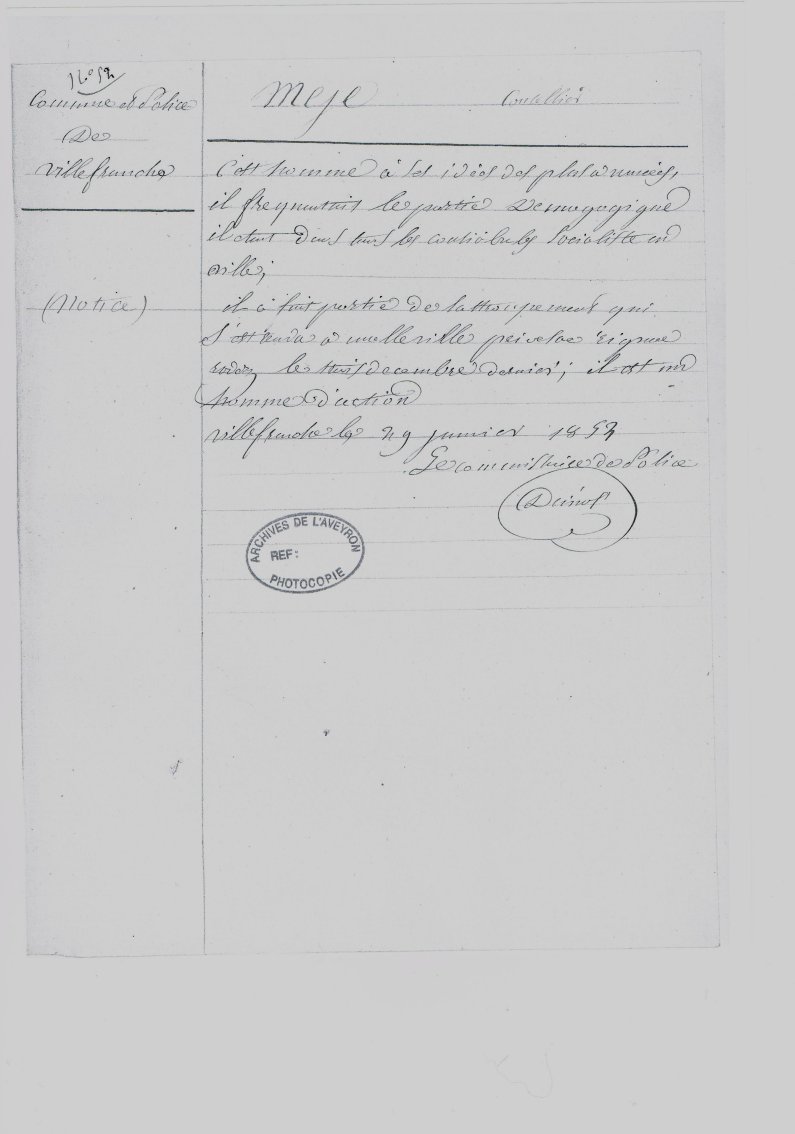 N.o 52
Commune et Police
De
Villefranche
(Notice)
Meje Coutellier
C'est homme à ses idées des plus avancées,
il frequantait le partie Demagogique
il etait dans tous les conciliabules Socialiste en
ville;
il à fait partie de lattroupement qui
s'est rendu à
rodez le trois decembre dernier; il est un
homme d'action
villefranche le 29 janvier 1852
Le commissaire de Police
ARCHIVES DE L'AVEYRON
REF:
PHOTOCOPIE